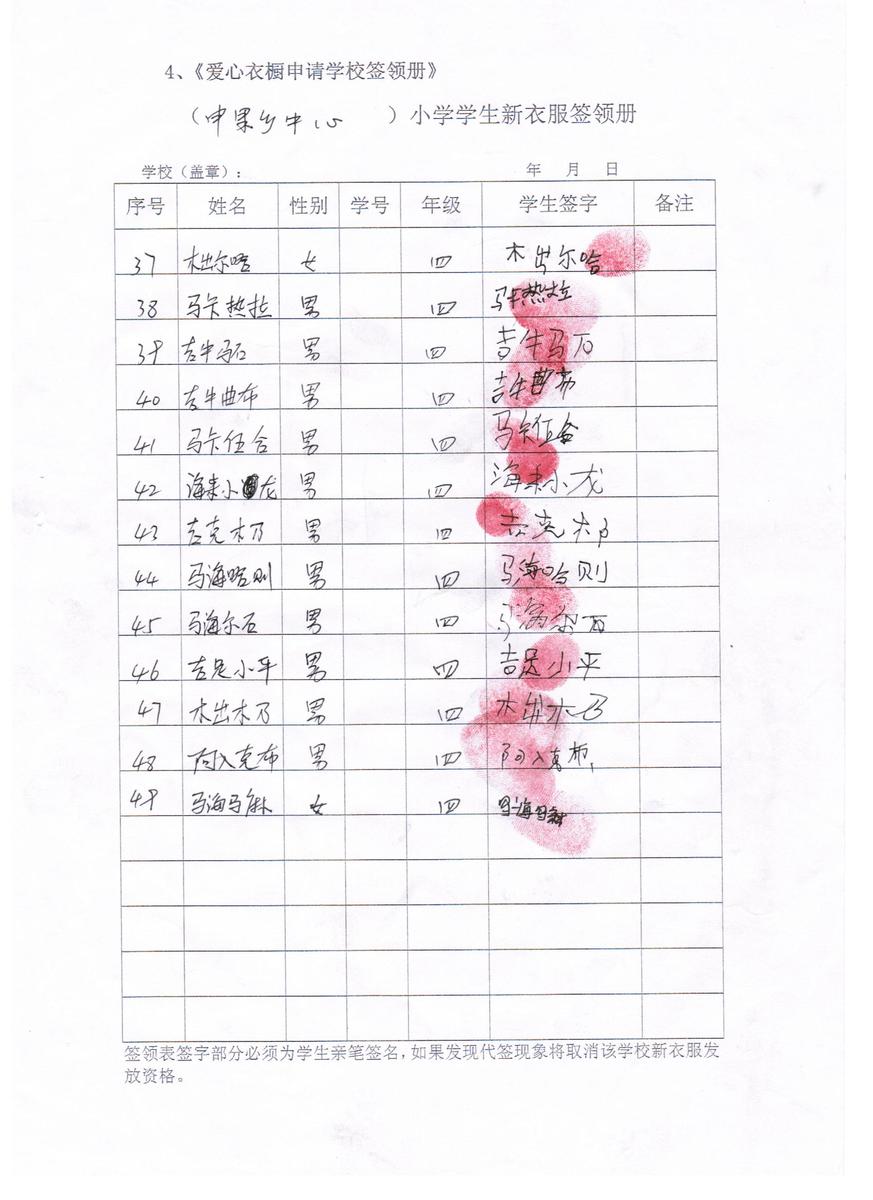 4、《爱心衣橱申请学校签领册》
（申果乡中心）小学学生新衣服签领册
学校（盖章）： 年 月 日
序号 姓名 性别 学号 年级 学生签字 备注
37 木出尔哈 女 四 木出尔哈
38 马卡热拉 男 四 马卡热拉
39 吉牛马石 男 四 吉牛马石
40 吉牛曲布 男 四 吉牛曲布
41 马卡伍合 男 四 马卡伍合
42 海来小龙 男 四 海来小龙
43 吉克木乃 男 四 吉克木乃
44 马海哈则 男 四 马海哈则
45 马海尔石 男 四 马海尔石
46 吉足小平 男 四 吉足小平
47 木出木乃 男 四 木出木乃
48 阿入克布 男 四 阿入克布
49 马海马麻 女 四
签领表签字部分必须为学生亲笔签名，如果发现代签现象将取消该学校新衣服发
放资格。